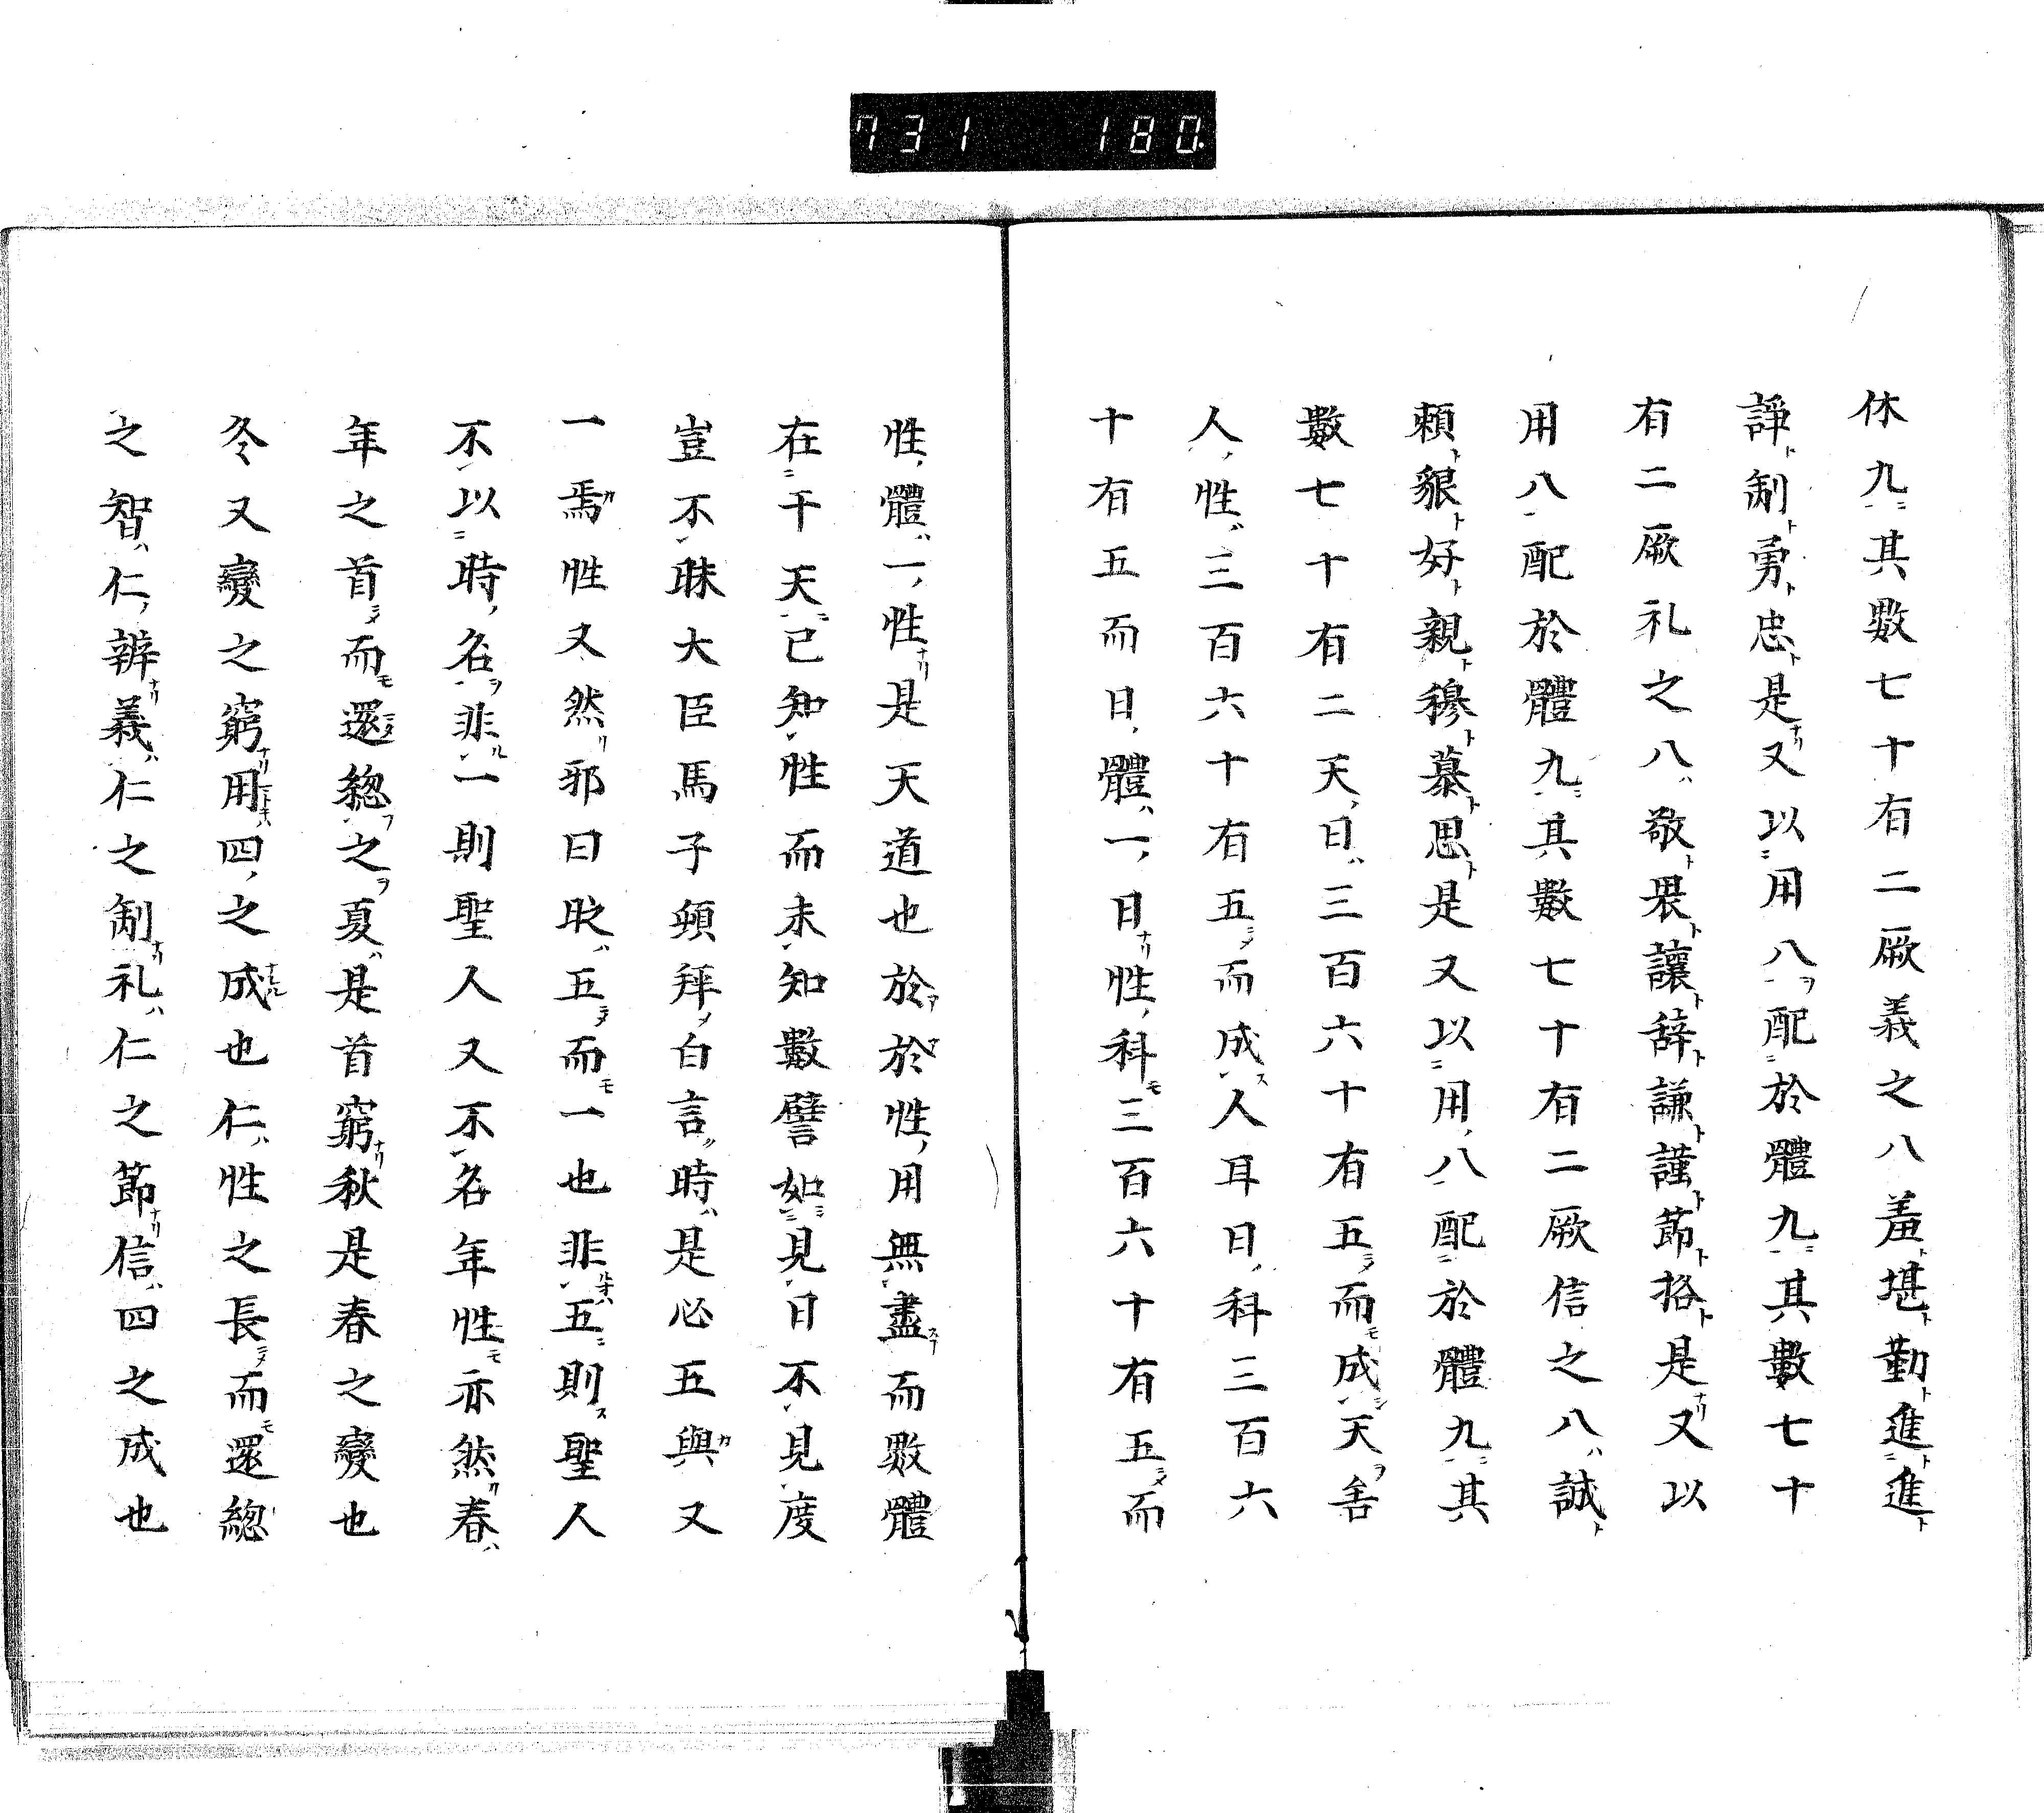 731 180
休九其數七十有二厥義之八羞堪勤進進
諍制勇忠是又以用八配於體九其數七十
有二厥礼之八敬畏讓辞謙謹節挌是又以
用八配於體九其數七十有二厥信之八誠
賴貇好親穆慕思是又以用八配於體九其
數七十有二天日三百六十有五而成天舍
人性三百六十有五而成人耳日科三百六
十有五而日體一日性科三百六十有五而
性體一性是天道也於於性用無盡而數體
在干天已知性而未知數譬如見日不見度
豈不眛大臣馬子頓拜白言時是必五與又
一焉性又然邪曰㕝五而一也非五則聖人
不以時名非一則聖人又不名年性亦然春
年之首而還緫之夏是首窮秋是春之變也
冬又變之窮用四之成也仁性之長而還緫
之智仁辨義仁之制礼仁之節信四之成也